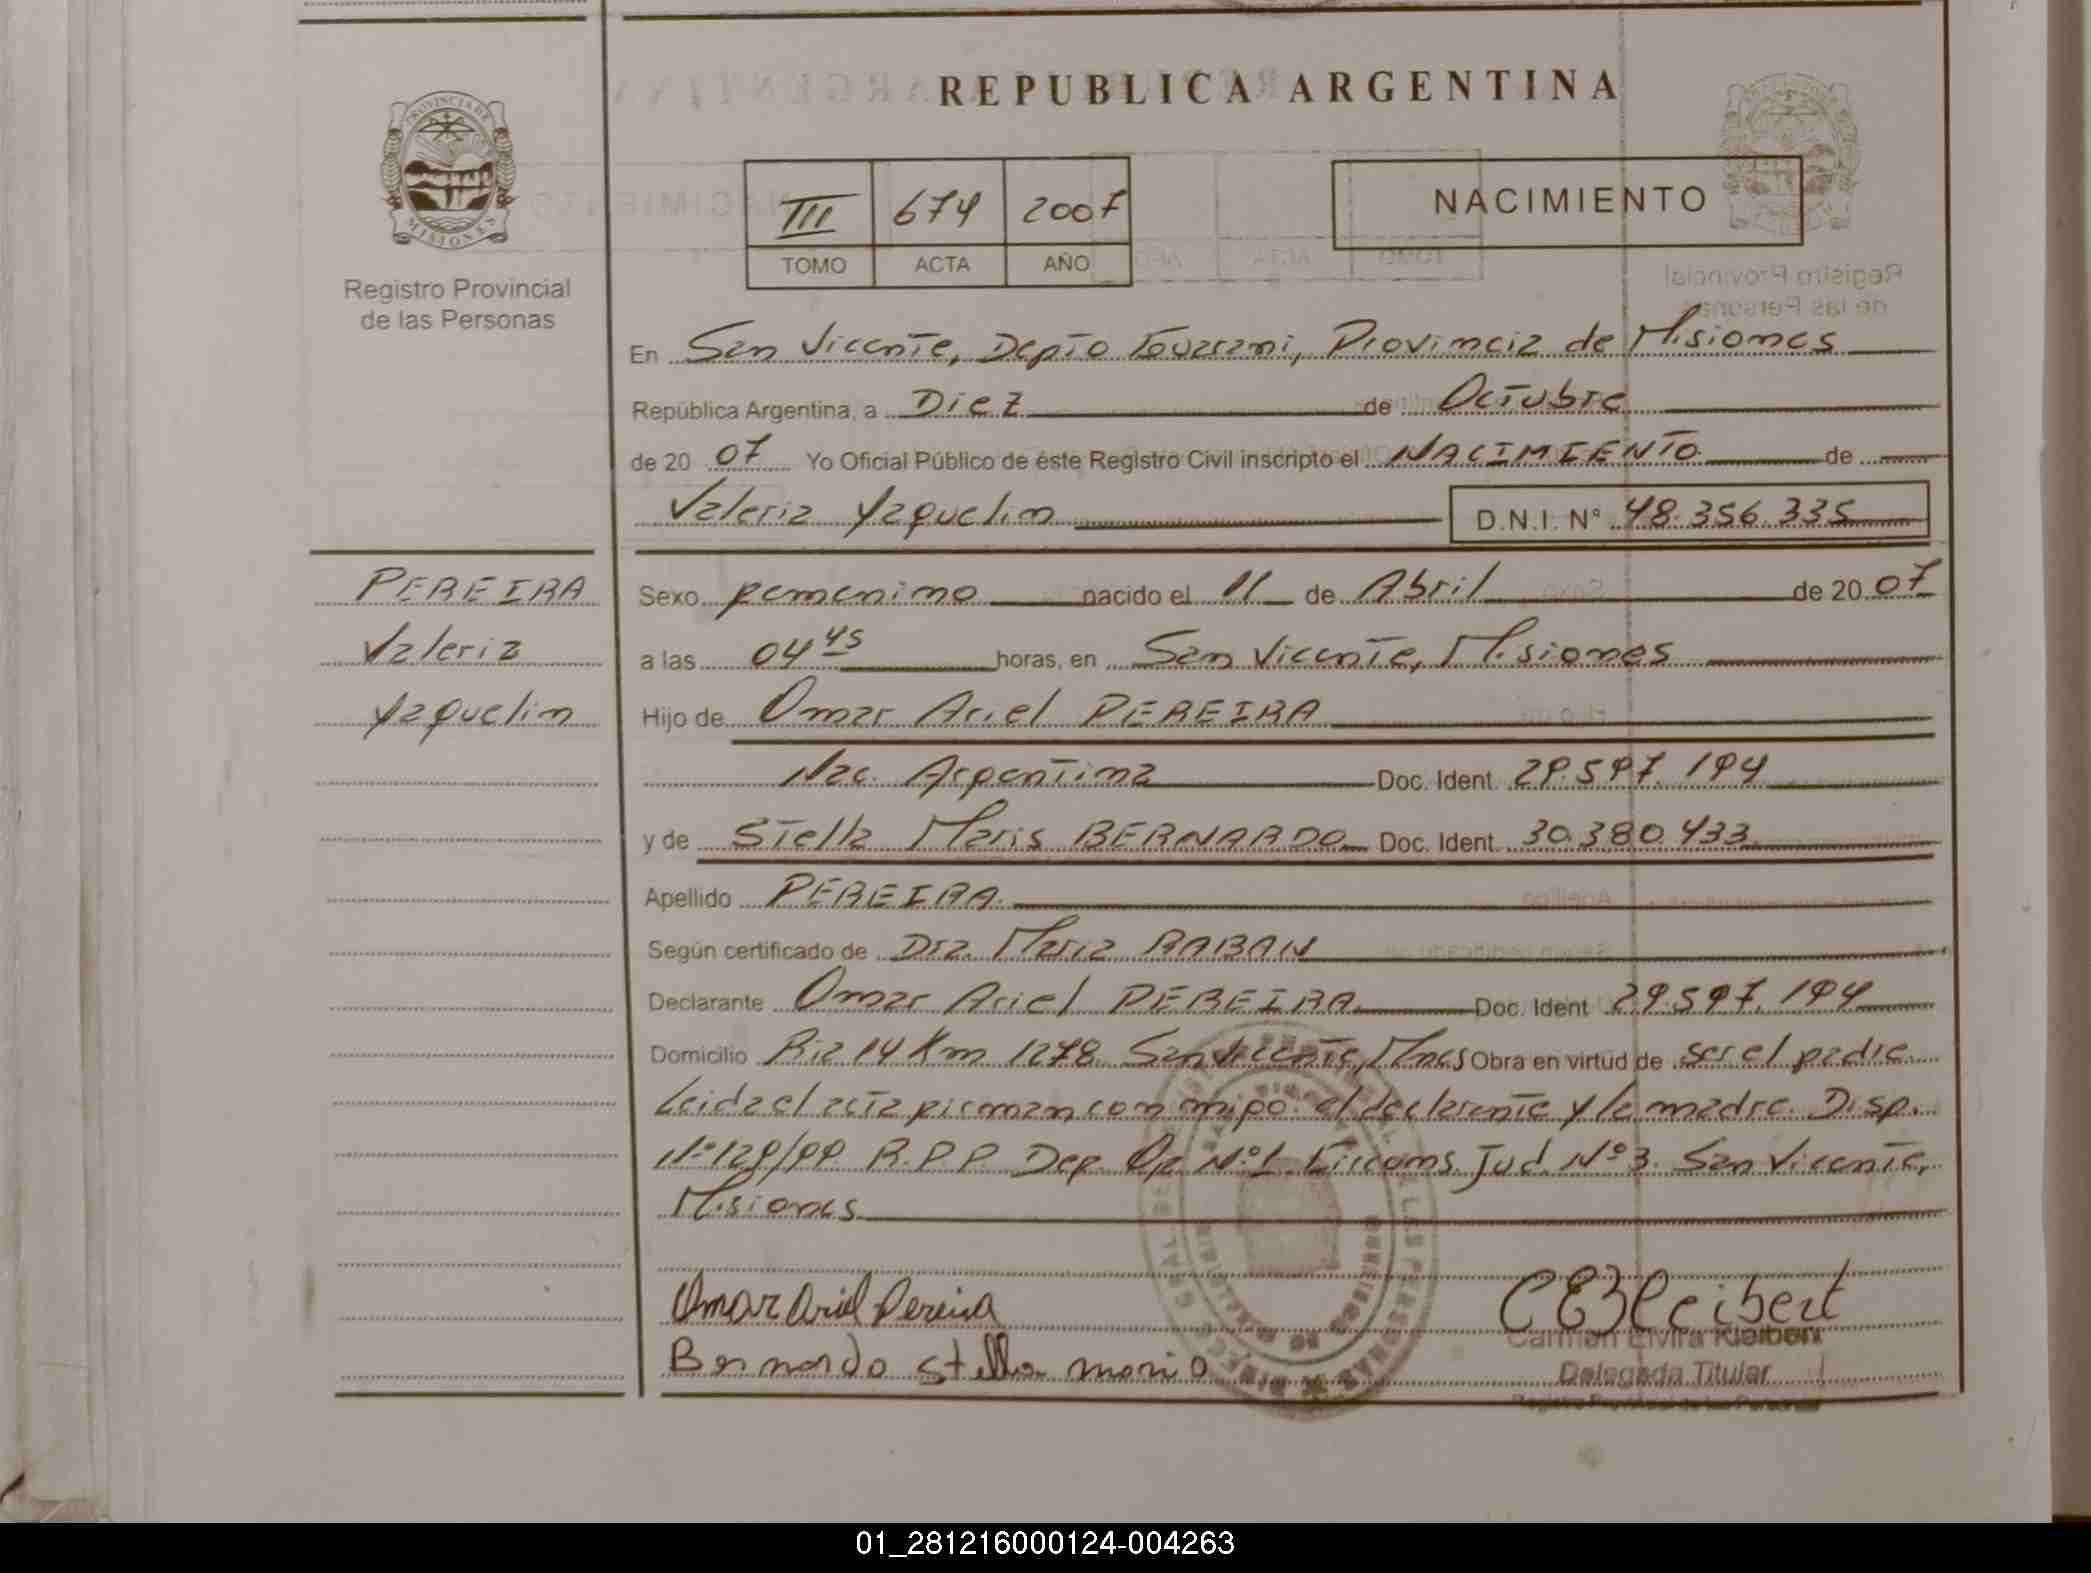 REPUBLICA ARGENTINA
PROVINCIA DE MISIONES
Registro Provincial
de las Personas
III 674 2007
TOMO ACTA AÑO
NACIMIENTO
En San Vicente, Depto Guarani, Provincia de Misiones
República Argentina, a Diez de Octubre
de 20 07 Yo Oficial Público de éste Registro Civil inscripto el NACIMIENTO de
Valeria Yaquelin D.N.I. N° 48.356.335
PEREIRA
Valeria
Yaquelin
Sexo femenino nacido el 11 de Abril de 20 07
a las 04 45 horas, en San Vicente, Misiones
Hijo de Omar Ariel PEREIRA
Nac. Argentina Doc. Ident. 29.597.194
y de Stella Maris BERNARDO Doc. Ident. 30.380.433
Apellido PEREIRA
Según certificado de Dra. Maria RABAN
Declarante Omar Ariel PEREIRA Doc. Ident 29.597.194
Domicilio Ria 14 Km 1278 San Vicente, Mnes Obra en virtud de ser el padre
Leida el acta firman con migo el declarante y la madre. Disp.
N° 129/99 R.P.P. Dep. Of N°1 Circuns. Jud N°3. San Vicente,
Misiones
Omar Ariel Pereira
Bernardo Stella maris
CEKleibert
Carmen Elvira Kleibert
Delegada Titular
Registro Provincial de las Personas
01_281216000124-004263